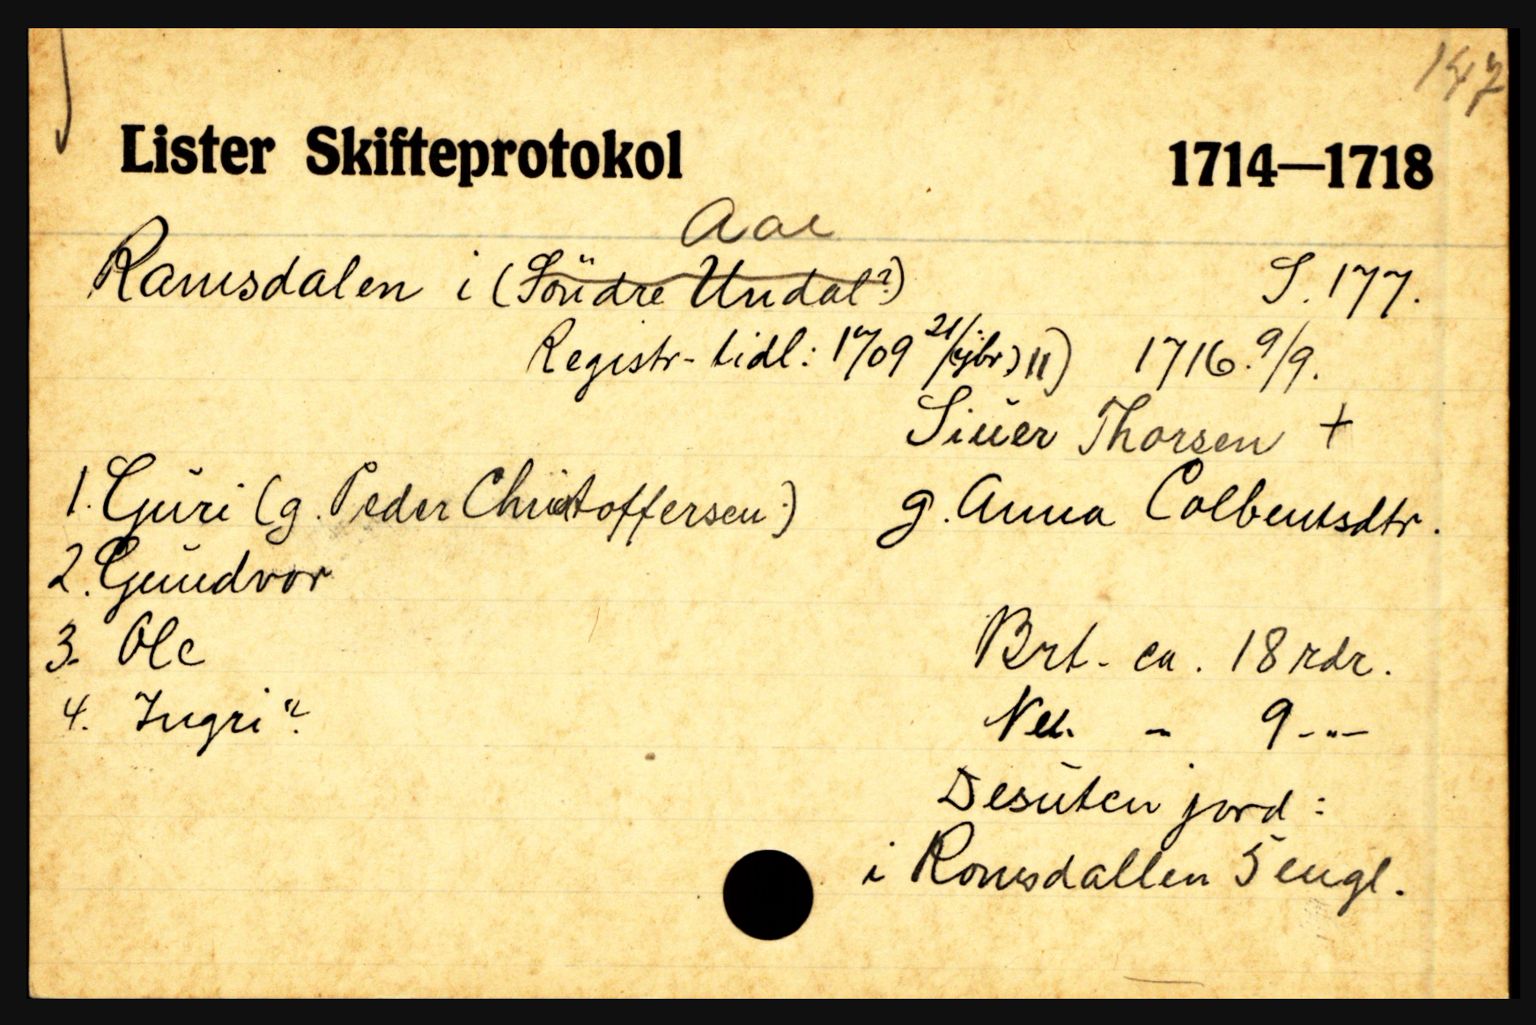 147
Lister Skifteprotokol 1714—1718
Aae
Ramsdalen i (Söndre Undal?) S. 177.
Registr. tidl: 1709 21/ 11) 1716. 9/9.
Siuer Thorsen +
1. Guri (g. Peder Christoffersen) g. Anna Colbentsdtr.
2. Gundvor
3. Ole Brt. ca. 18 rdr.
4. Ingri". Net. - 9 -"-
Desuten jord:
i Romsdallen 5 engl.